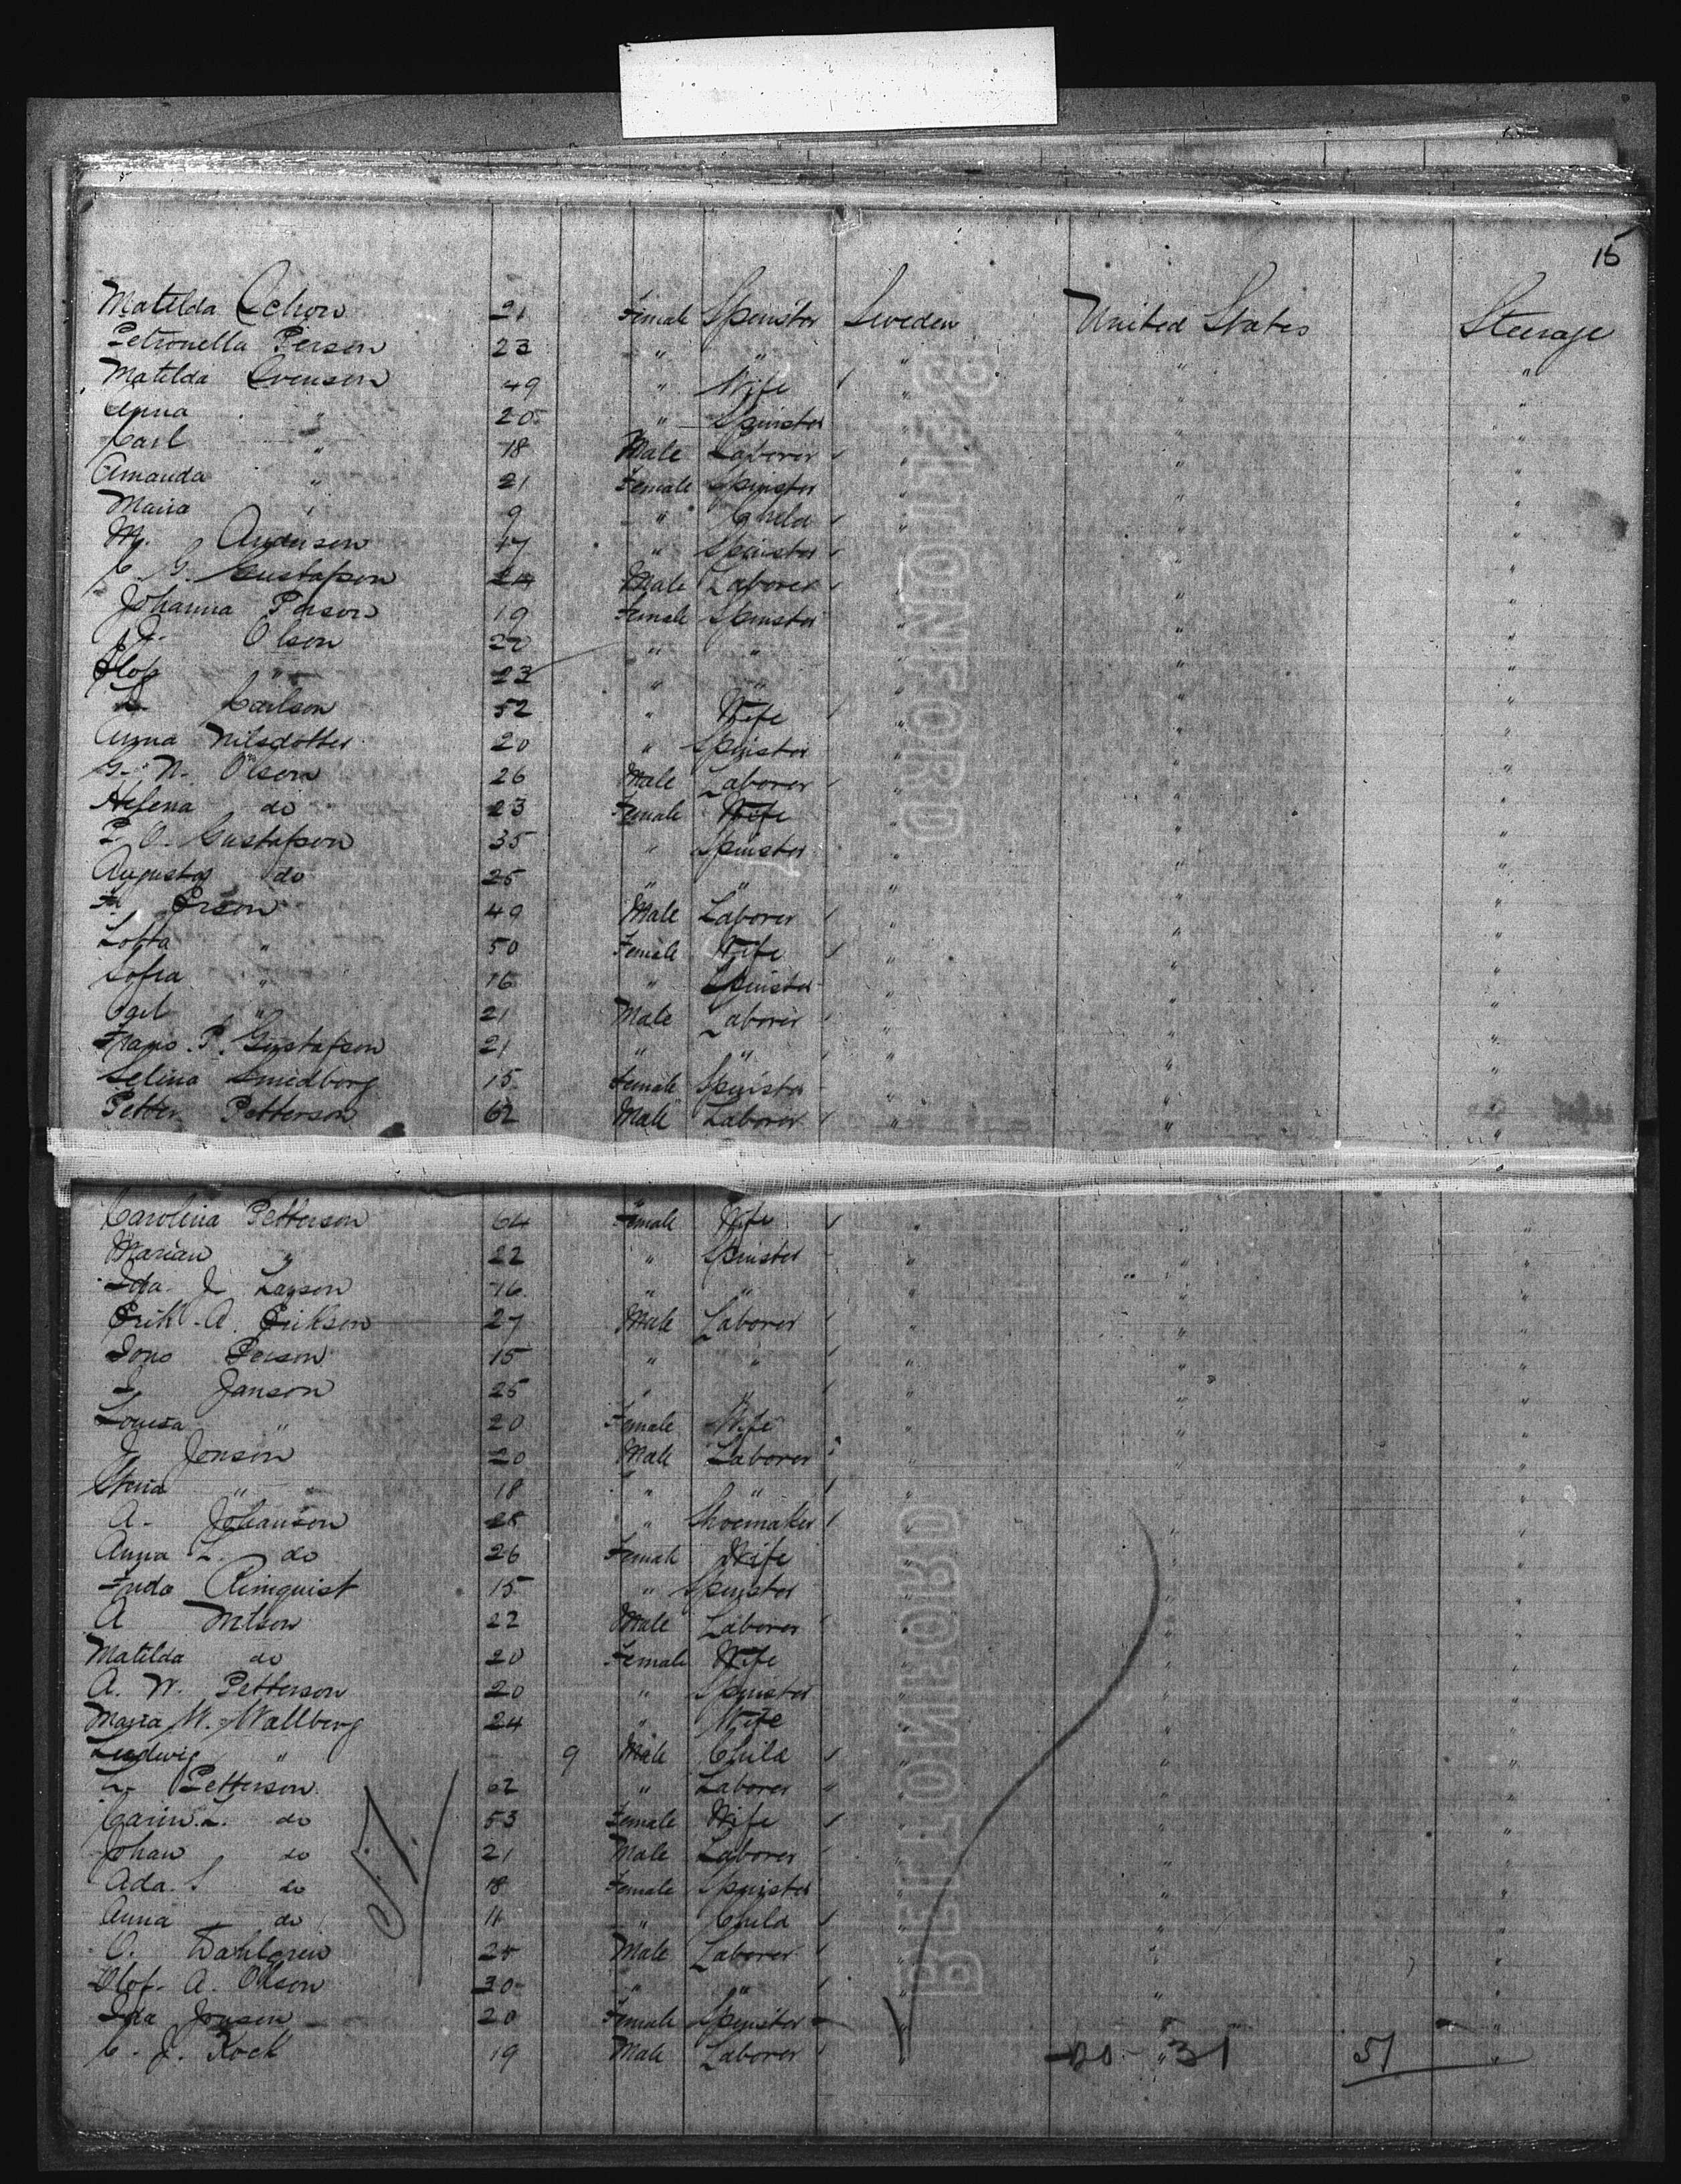 15
Matilda 21 Female Spinster Sweden United States Steerage
Petronella Person 23 " " " "
Matilda Svenson 49 " Wife " " "
Anna " 20 " Spinster " " "
Carl " 18 Male Laborer " " "
Amanda " 21 Female Spinster " " "
Maria " 9 " Child " " "
M. Anderson 17 " Spinster " " "
C. G. Gustafson 24 Male Laborer " " "
Johanna Person 19 Female Spinster " " "
Olson 22 " " " " "
Olof " 23 " " " " "
Carlson 52 " Wife " " "
Anna Nilsdotter 20 " Spinster " " "
G. N. Olson 26 Male Laborer " " "
Helena do 23 Female Wife " " "
P. O. Gustafson 35 " Spinster " " "
Augustas do 25 " " " " "
Erson 49 Male Laborer " " "
Lotta " 50 Female Wife " " "
Sofia " 16 " Spinster " " "
Carl " 21 Male Laborer " " "
Frans. P. Gustafson 21 " " " " "
Selina Smedberg 15 Female Spinster " " "
Petter Petterson 62 Male Laborer " " "
Carolina Petterson 64 Female Wife " " "
Marian " 22 " Spinster " " "
Ida J Larson 16 " " " " "
Erik. A. Erikson 27 Male Laborer " " "
Jons Person 15 " " " " "
Janson 25 " " " " "
Louisa " 20 Female Wife " " "
J Jonson 20 Male Laborer " " "
Stina " 18 " " " " "
A. Johanson 25 " Shoemaker " " "
Anna L. do 26 Female Wife " " "
15 " Spinster " " "
A Nilson 22 Male Laborer " " "
Matilda do 20 Female Wife " " "
A. W. Petterson 20 " Spinster " " "
Maria M. Wallberg 24 " Wife " " "
Ludwig " 9 Male Child " " "
L. Petterson 62 " Laborer " " "
Carin. L. do 53 Female Wife " " "
Johan do 21 Male Laborer " " "
Ada. S do 18 Female Spinster " " "
Anna do 11 " Child " " "
O. Dahlgren 25 Male Laborer " " "
Olof. A. Olson 30 " " " " "
Ida Jonsen 20 Female Spinster " " "
C. J. Kock 19 Male Laborer " " "
20 - 31 51
BELTONFORD
BELTONFORD